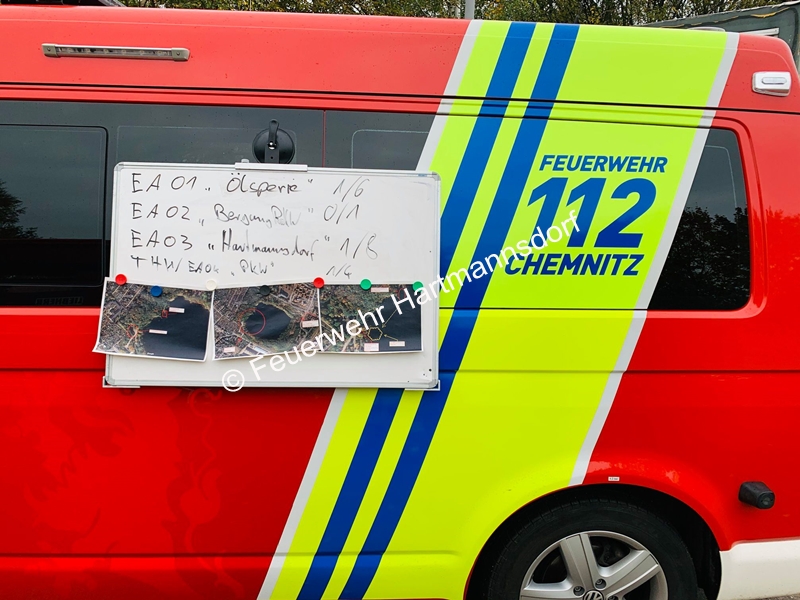 EA 01 „Ölsperre" 1/6
EA 02 „Bergung PKW" 0/1
EA 03 „Hartmannsdorf" 1/8
THW/EA04 „PKW" 1/4
FEUERWEHR
112
CHEMNITZ
© Feuerwehr Hartmannsdorf